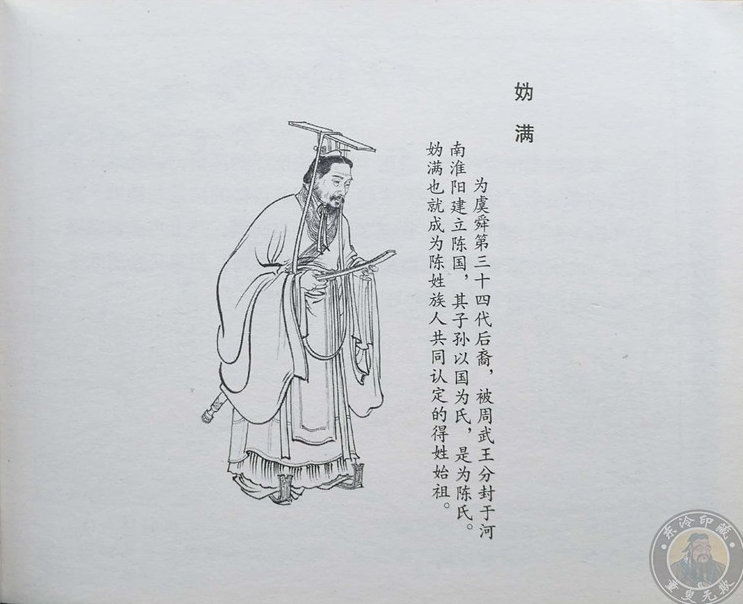 妫满
为虞舜第三十四代后裔，被周武王分封于河
南淮阳建立陈国，其子孙以国为氏，是为陈氏。
妫满也就成为陈姓族人共同认定的得姓始祖。
东泠印藏
童叟无欺